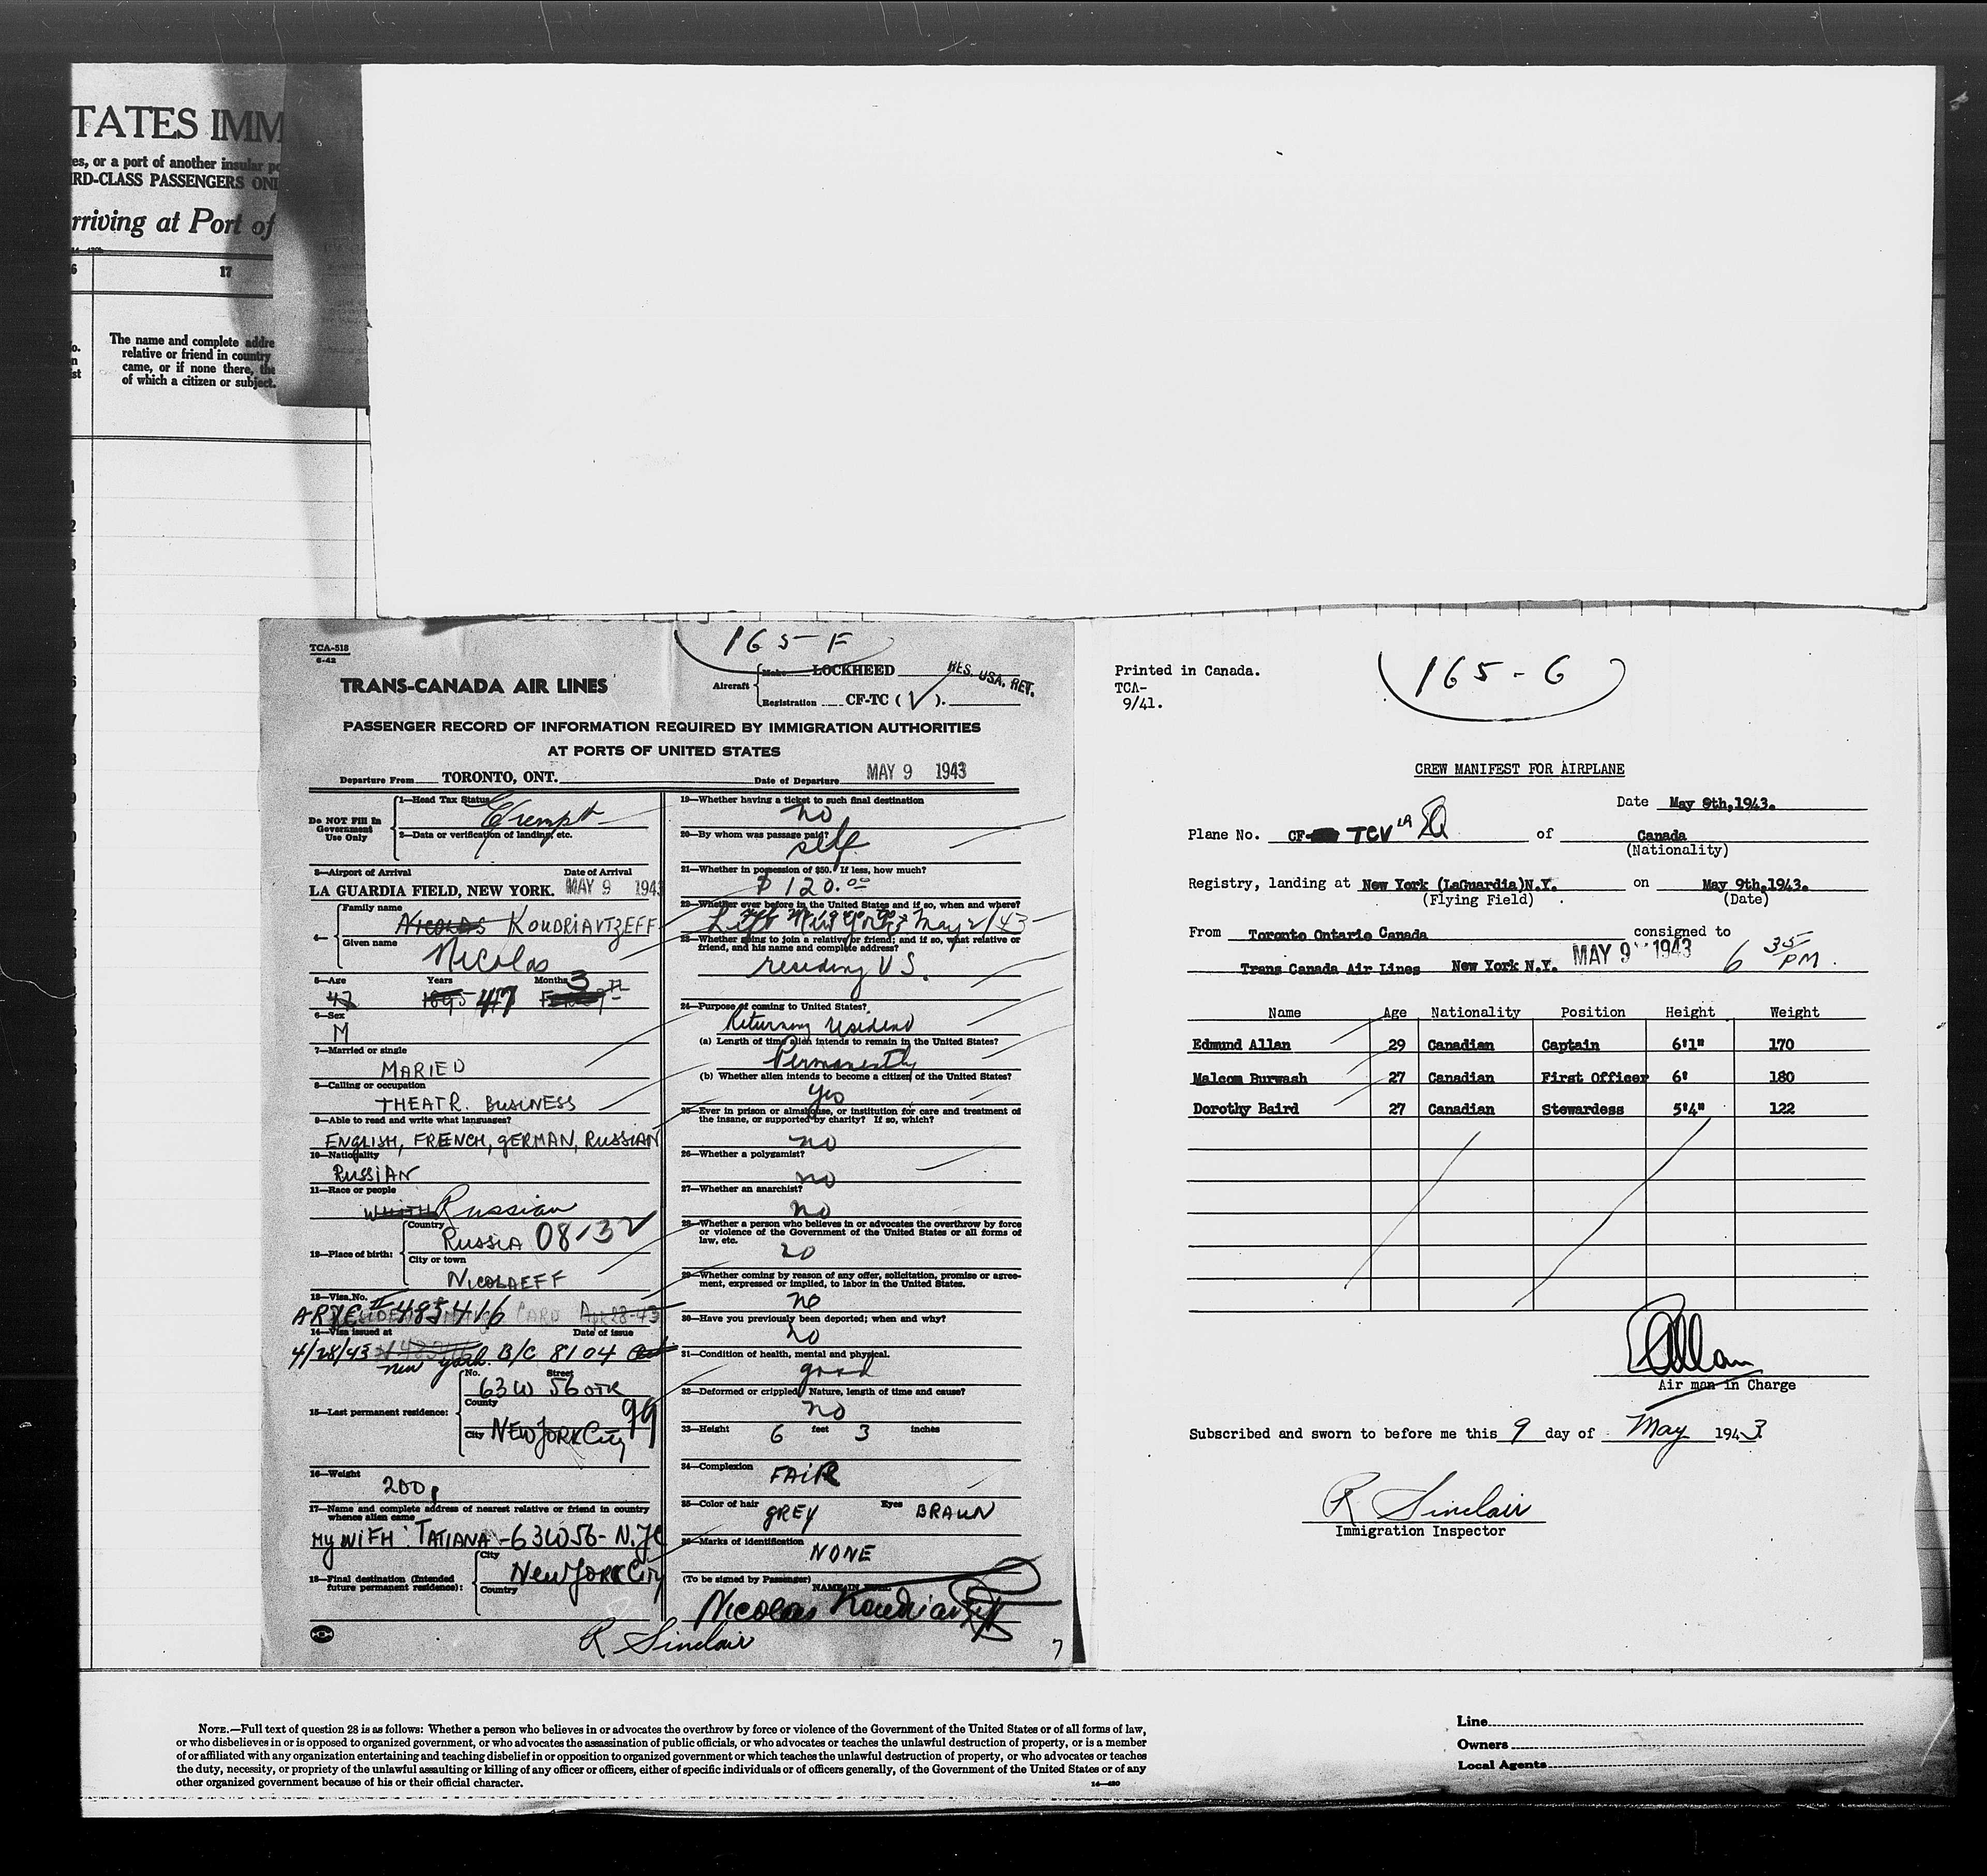 TATES IMM
es, or a port of another insular po
IRD-CLASS PASSENGERS ONL
rriving at Port of
6
17
The name and complete addre
relative or friend in country
came, or if none there, the
of which a citizen or subject.
o.
n
st
TCA-518
6-42
165-F
TRANS-CANADA AIR LINES
Aircraft
Make LOCKHEED
RES. USA. RET.
Registration CF-TC (V).
PASSENGER RECORD OF INFORMATION REQUIRED BY IMMIGRATION AUTHORITIES
AT PORTS OF UNITED STATES
Departure From TORONTO, ONT. Date of Departure MAY 9 1943
Do NOT Fill In
Government
Use Only
1—Head Tax Status Exempt
2—Data or verification of landing, etc.
3—Airport of Arrival Date of Arrival
LA GUARDIA FIELD, NEW YORK. MAY 9 1943
4— Family name
Nicolas KOUDRIAVTZEFF
Given name
Nicolas
5—Age Years Months 3
47 1895 47
6—Sex
M
7—Married or single
MARIED
8—Calling or occupation
THEATR. BUSINESS
9—Able to read and write what languages?
ENGLISH, FRENCH, GERMAN, RUSSIAN
10—Nationality
RUSSIAN
11—Race or people
Russian
12—Place of birth:
Country
RUSSIA 08-32
City or town
NICOLAEFF
13—Visa No.
485416 CARD Apr 28-43
14—Visa issued at Date of issue
4/28/43 New York. B/C 8104
15—Last permanent residence:
No. Street
63 W 56
County
99
City NEW YORK City
16—Weight
200
17—Name and complete address of nearest relative or friend in country
whence alien came
MY WIFH: TATIANA - 63W56 - N.YC
18—Final destination (Intended
future permanent residence):
City
New YORK City
Country
19—Whether having a ticket to such final destination
no
20—By whom was passage paid?
self
21—Whether in possession of $50. If less, how much?
$120.00
22—Whether ever before in the United States and if so, when and where?
Left New York May 2/43
23—Whether going to join a relative or friend; and if so, what relative or
friend, and his name and complete address?
residing US.
24—Purpose of coming to United States?
Returning resident
(a) Length of time alien intends to remain in the United States?
Permanently
(b) Whether alien intends to become a citizen of the United States?
Yes
25—Ever in prison or almshouse, or institution for care and treatment of
the insane, or supported by charity? If so, which?
no
26—Whether a polygamist?
no
27—Whether an anarchist?
no
28—Whether a person who believes in or advocates the overthrow by force
or violence of the Government of the United States or all forms of
law, etc.
no
29—Whether coming by reason of any offer, solicitation, promise or agree-
ment, expressed or implied, to labor in the United States.
no
30—Have you previously been deported; when and why?
no
31—Condition of health, mental and physical.
good
32—Deformed or crippled. Nature, length of time and cause?
no
33—Height 6 feet 3 inches
34—Complexion FAIR
35—Color of hair GREY Eyes BRAUN
36—Marks of identification NONE
(To be signed by Passenger) NAME IN FULL
Nicolas Koudriavtzeff
R Sinclair
7
Printed in Canada.
TCA-
9/41.
165-G
CREW MANIFEST FOR AIRPLANE
Date May 9th,1943.
Plane No. CF- TCV of Canada
(Nationality)
Registry, landing at New York (LaGuardia)N.Y. on May 9th,1943.
(Flying Field) (Date)
From Toronto Ontario Canada consigned to
Trans Canada Air Lines New York N.Y. MAY 9 1943 6 35 PM.
Name Age Nationality Position Height Weight
Edmund Allan 29 Canadian Captain 6'1" 170
Malcom Burwash 27 Canadian First Officer 6' 180
Dorothy Baird 27 Canadian Stewardess 5'4" 122
EAllan
Air man in Charge
Subscribed and sworn to before me this 9 day of May 1943
R Sinclair
Immigration Inspector
NOTE.—Full text of question 28 is as follows: Whether a person who believes in or advocates the overthrow by force or violence of the Government of the United States or of all forms of law,
or who disbelieves in or is opposed to organized government, or who advocates the assassination of public officials, or who advocates or teaches the unlawful destruction of property, or is a member
of or affiliated with any organization entertaining and teaching disbelief in or opposition to organized government or which teaches the unlawful destruction of property, or who advocates or teaches
the duty, necessity, or propriety of the unlawful assaulting or killing of any officer or officers, either of specific individuals or of officers generally, of the Government of the United States or of any
other organized government because of his or their official character.
14—420
Line
Owners
Local Agents